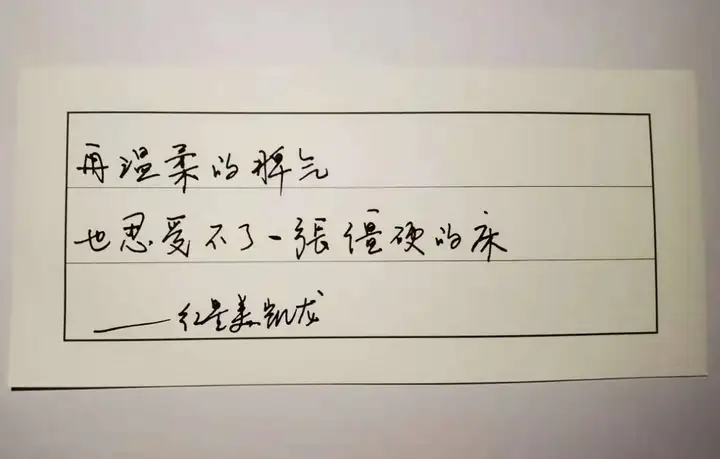 再温柔的脾气
也忍受不了一張僵硬的床
——红星美凯龙